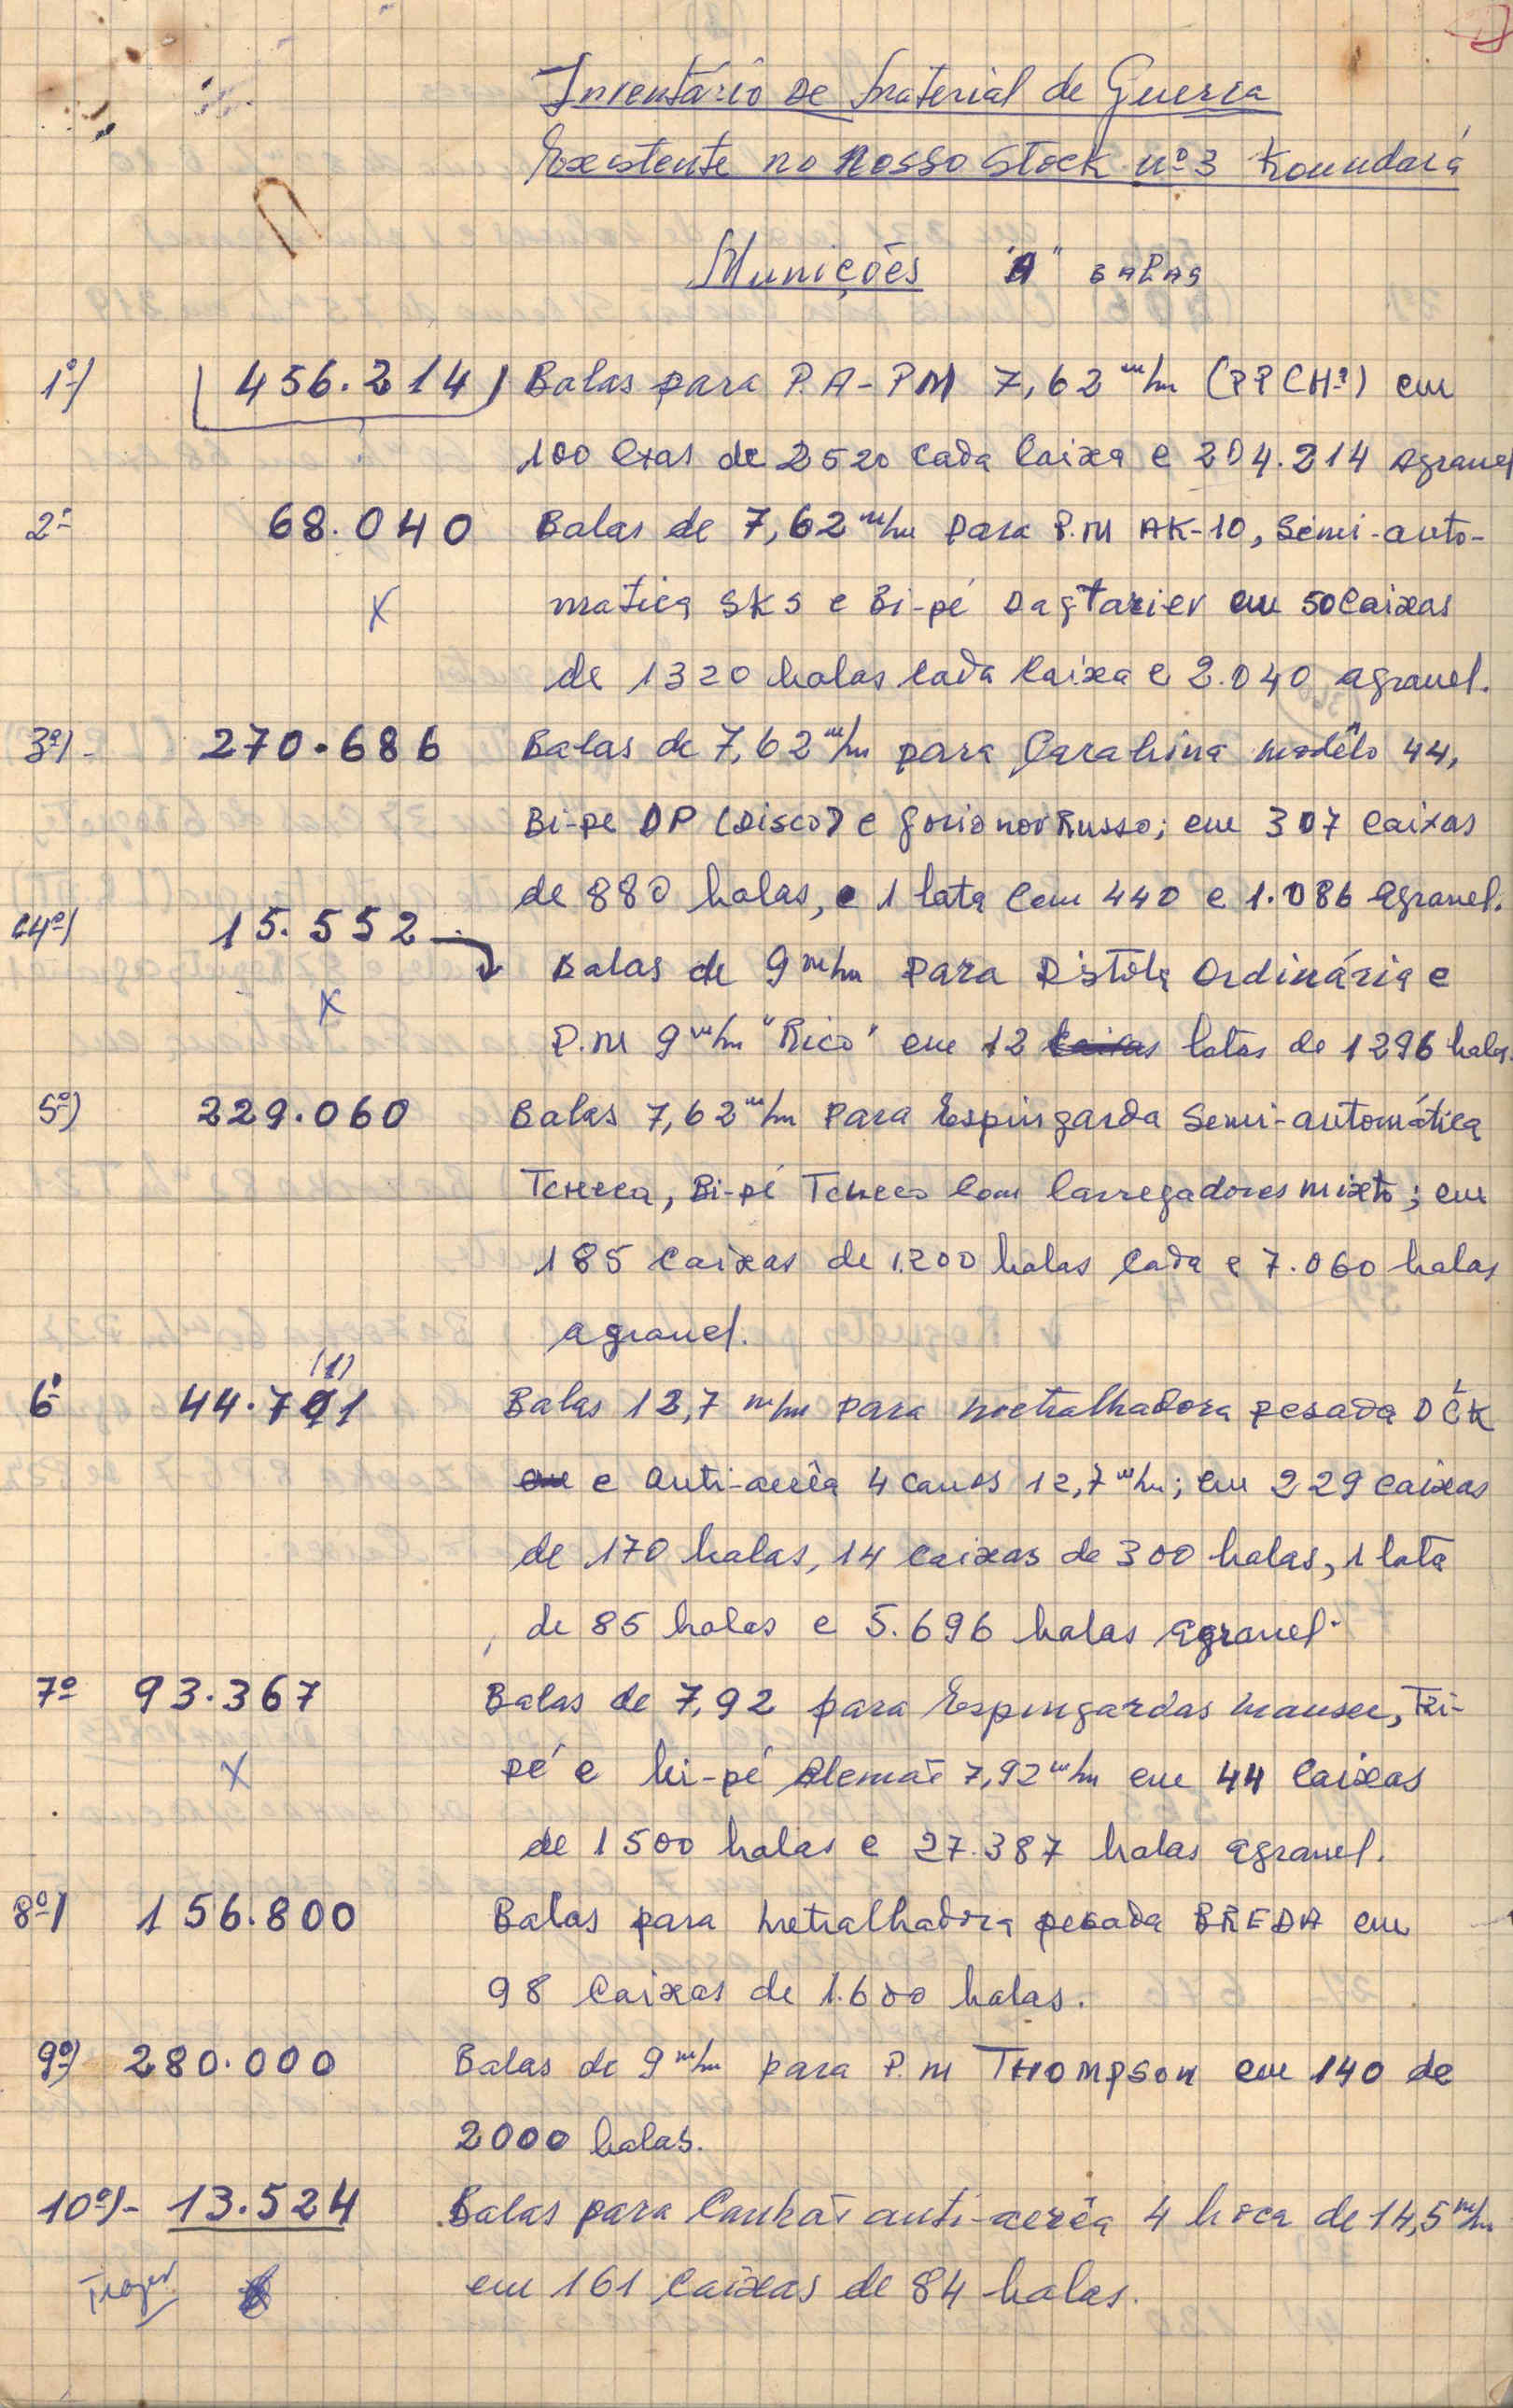 Inventário de Material de Guerra
Existente no Nosso Stock nº 3 Koundará
Munições "A" BALAS
1º) 456.214 Balas para P.A-P.M 7,62 m/m (PPCHª) em
100 Cxas de 2520 cada Caixa e 204.214 agranel
2º 68.040 Balas de 7,62 m/m para P.M AK-10, Semi-auto-
X matica SKS e Bi-pé Dagtariev em 50 Caixas
de 1320 balas cada Caixa e 2.040 agranel.
3º)- 270.686 Balas de 7,62 m/m para Carabina modêlo 44,
Bi-pe DP (Disco) e Gorionov Russo; em 307 Caixas
de 880 balas, e 1 lata com 440 e 1.086 agranel.
4º) 15.552 Balas de 9 m/m para Pistola Ordinária e
X P.M 9 m/m "Rico" em 12 Caixas latas de 1296 balas.
5º) 229.060 Balas 7,62 m/m para Espingarda Semi-automática
Tcheca, Bi-pé Tcheco com Carregadores mixto; em
185 Caixas de 1.200 balas Cada e 7.060 balas
agranel.
(1)
6º 44.791 Balas 12,7 m/m para metralhadora pesada DČK
em e anti-aerêa 4 canos 12,7 m/m; em 229 caixas
de 170 balas, 14 caixas de 300 balas, 1 lata
de 85 balas e 5.696 balas agranel.
7º 93.367 Balas de 7,92 para Espingardas mauser, Tri-
X pé e bi-pé Alemão 7,92 m/m em 44 Caixas
de 1500 balas e 27.387 balas agranel.
8º) 156.800 Balas para metralhadora pesada BREDA em
98 Caixas de 1.600 balas.
9º) 280.000 Balas de 9 m/m para P.M THOMPSON em 140 de
2000 balas.
10º)- 13.524 Balas para Canhão anti-aerêa 4 boca de 14,5 m/m
em 161 Caixas de 84 balas.